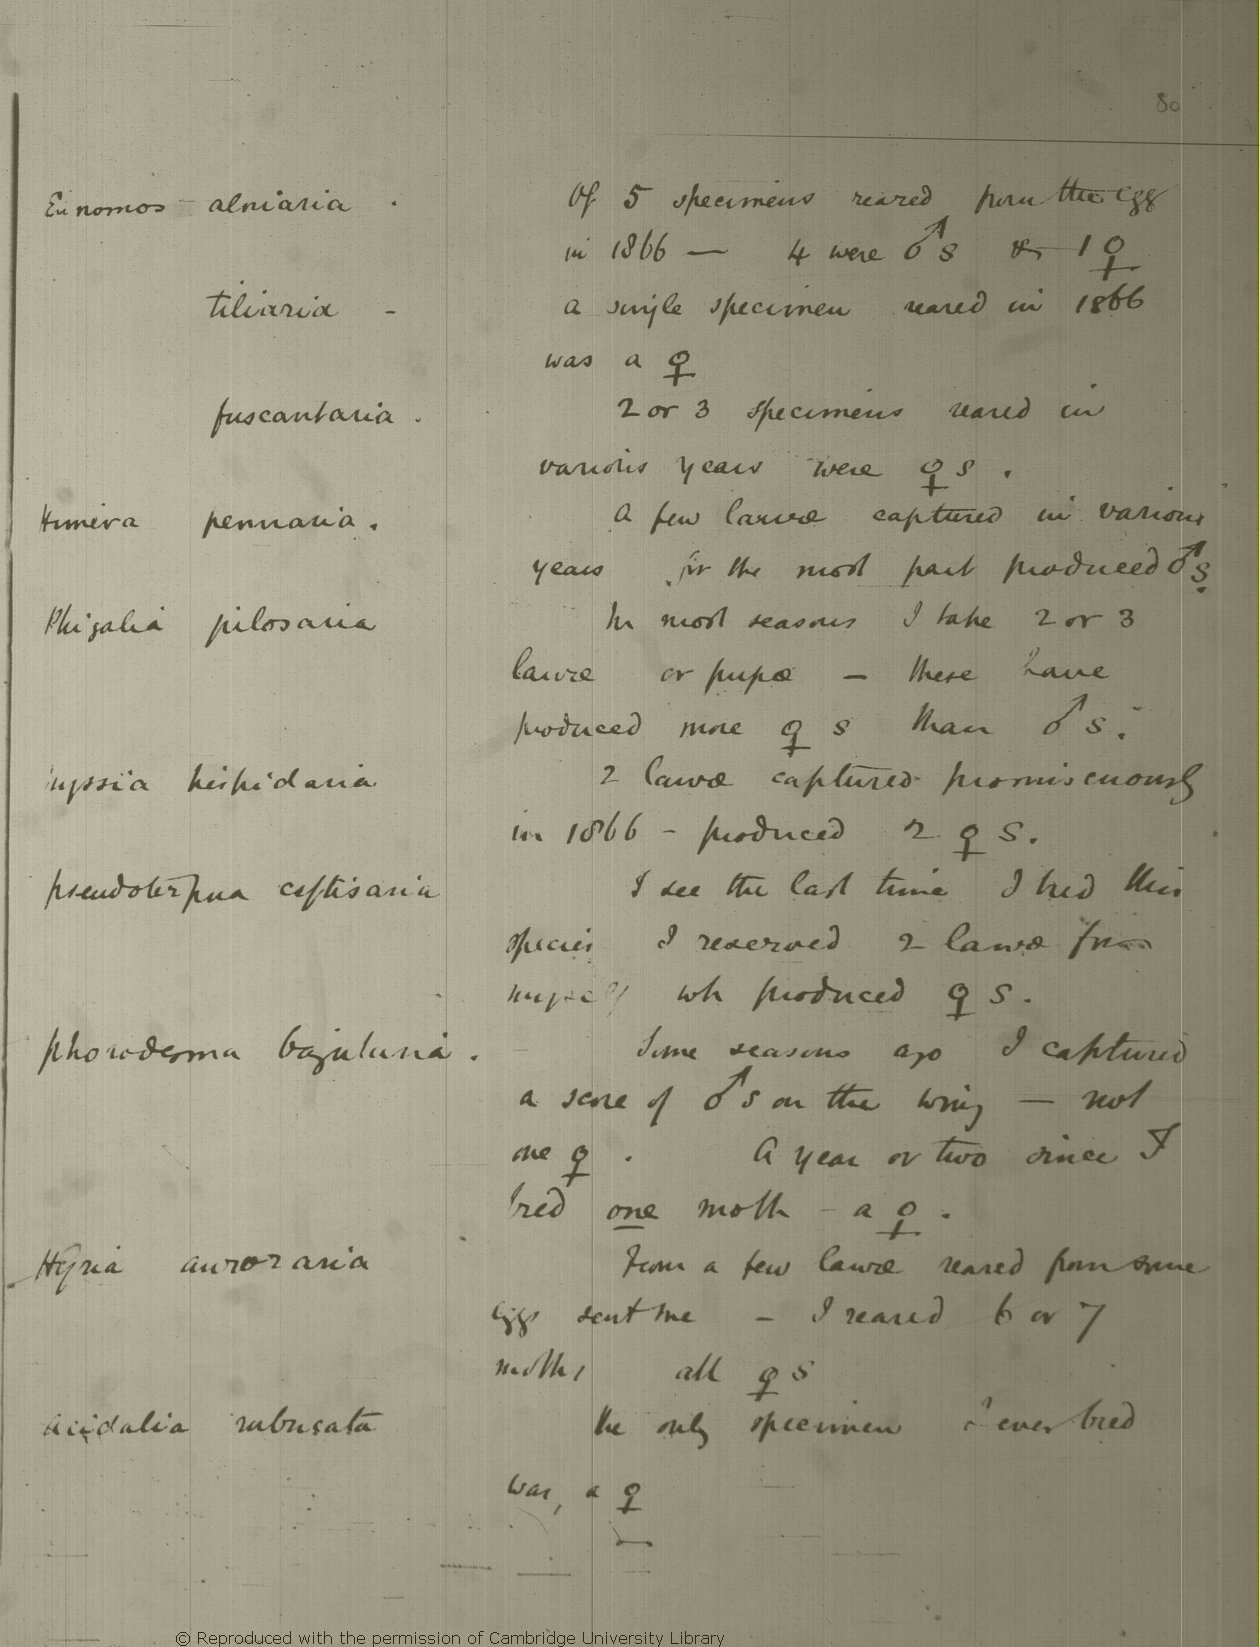 80
Ennomos alniaria . Of 5 specimens reared from the egg
in 1866 — 4 were ♂s & 1 ♀
tiliaria - a single specimen reared in 1866
was a ♀
fuscantaria . 2 or 3 specimens reared in
various years were ♀s .
Himera pennaria . A few larvæ captured in various
years for the most part produced ♂s.
Phigalia pilosaria In most seasons I take 2 or 3
larvæ or pupæ — these have
produced more ♀s than ♂s.
nyssia hispidaria 2 larvæ captured promiscuously
in 1866 - produced 2 ♀s.
pseudoterpna cytisaria I see the last time I bred this
species I reserved 2 larvæ for
myself wh produced ♀s.
phorodesma bajularia . Some seasons ago I captured
a score of ♂s on the wing — not
one ♀ . A year or two since I
bred one moth - a ♀ .
Hyria auroraria From a few larvæ reared from some
eggs sent me - I reared 6 or 7
moths all ♀s
Acidalia rubricata the only specimen I ever bred
was, a ♀
© Reproduced with the permission of Cambridge University Library